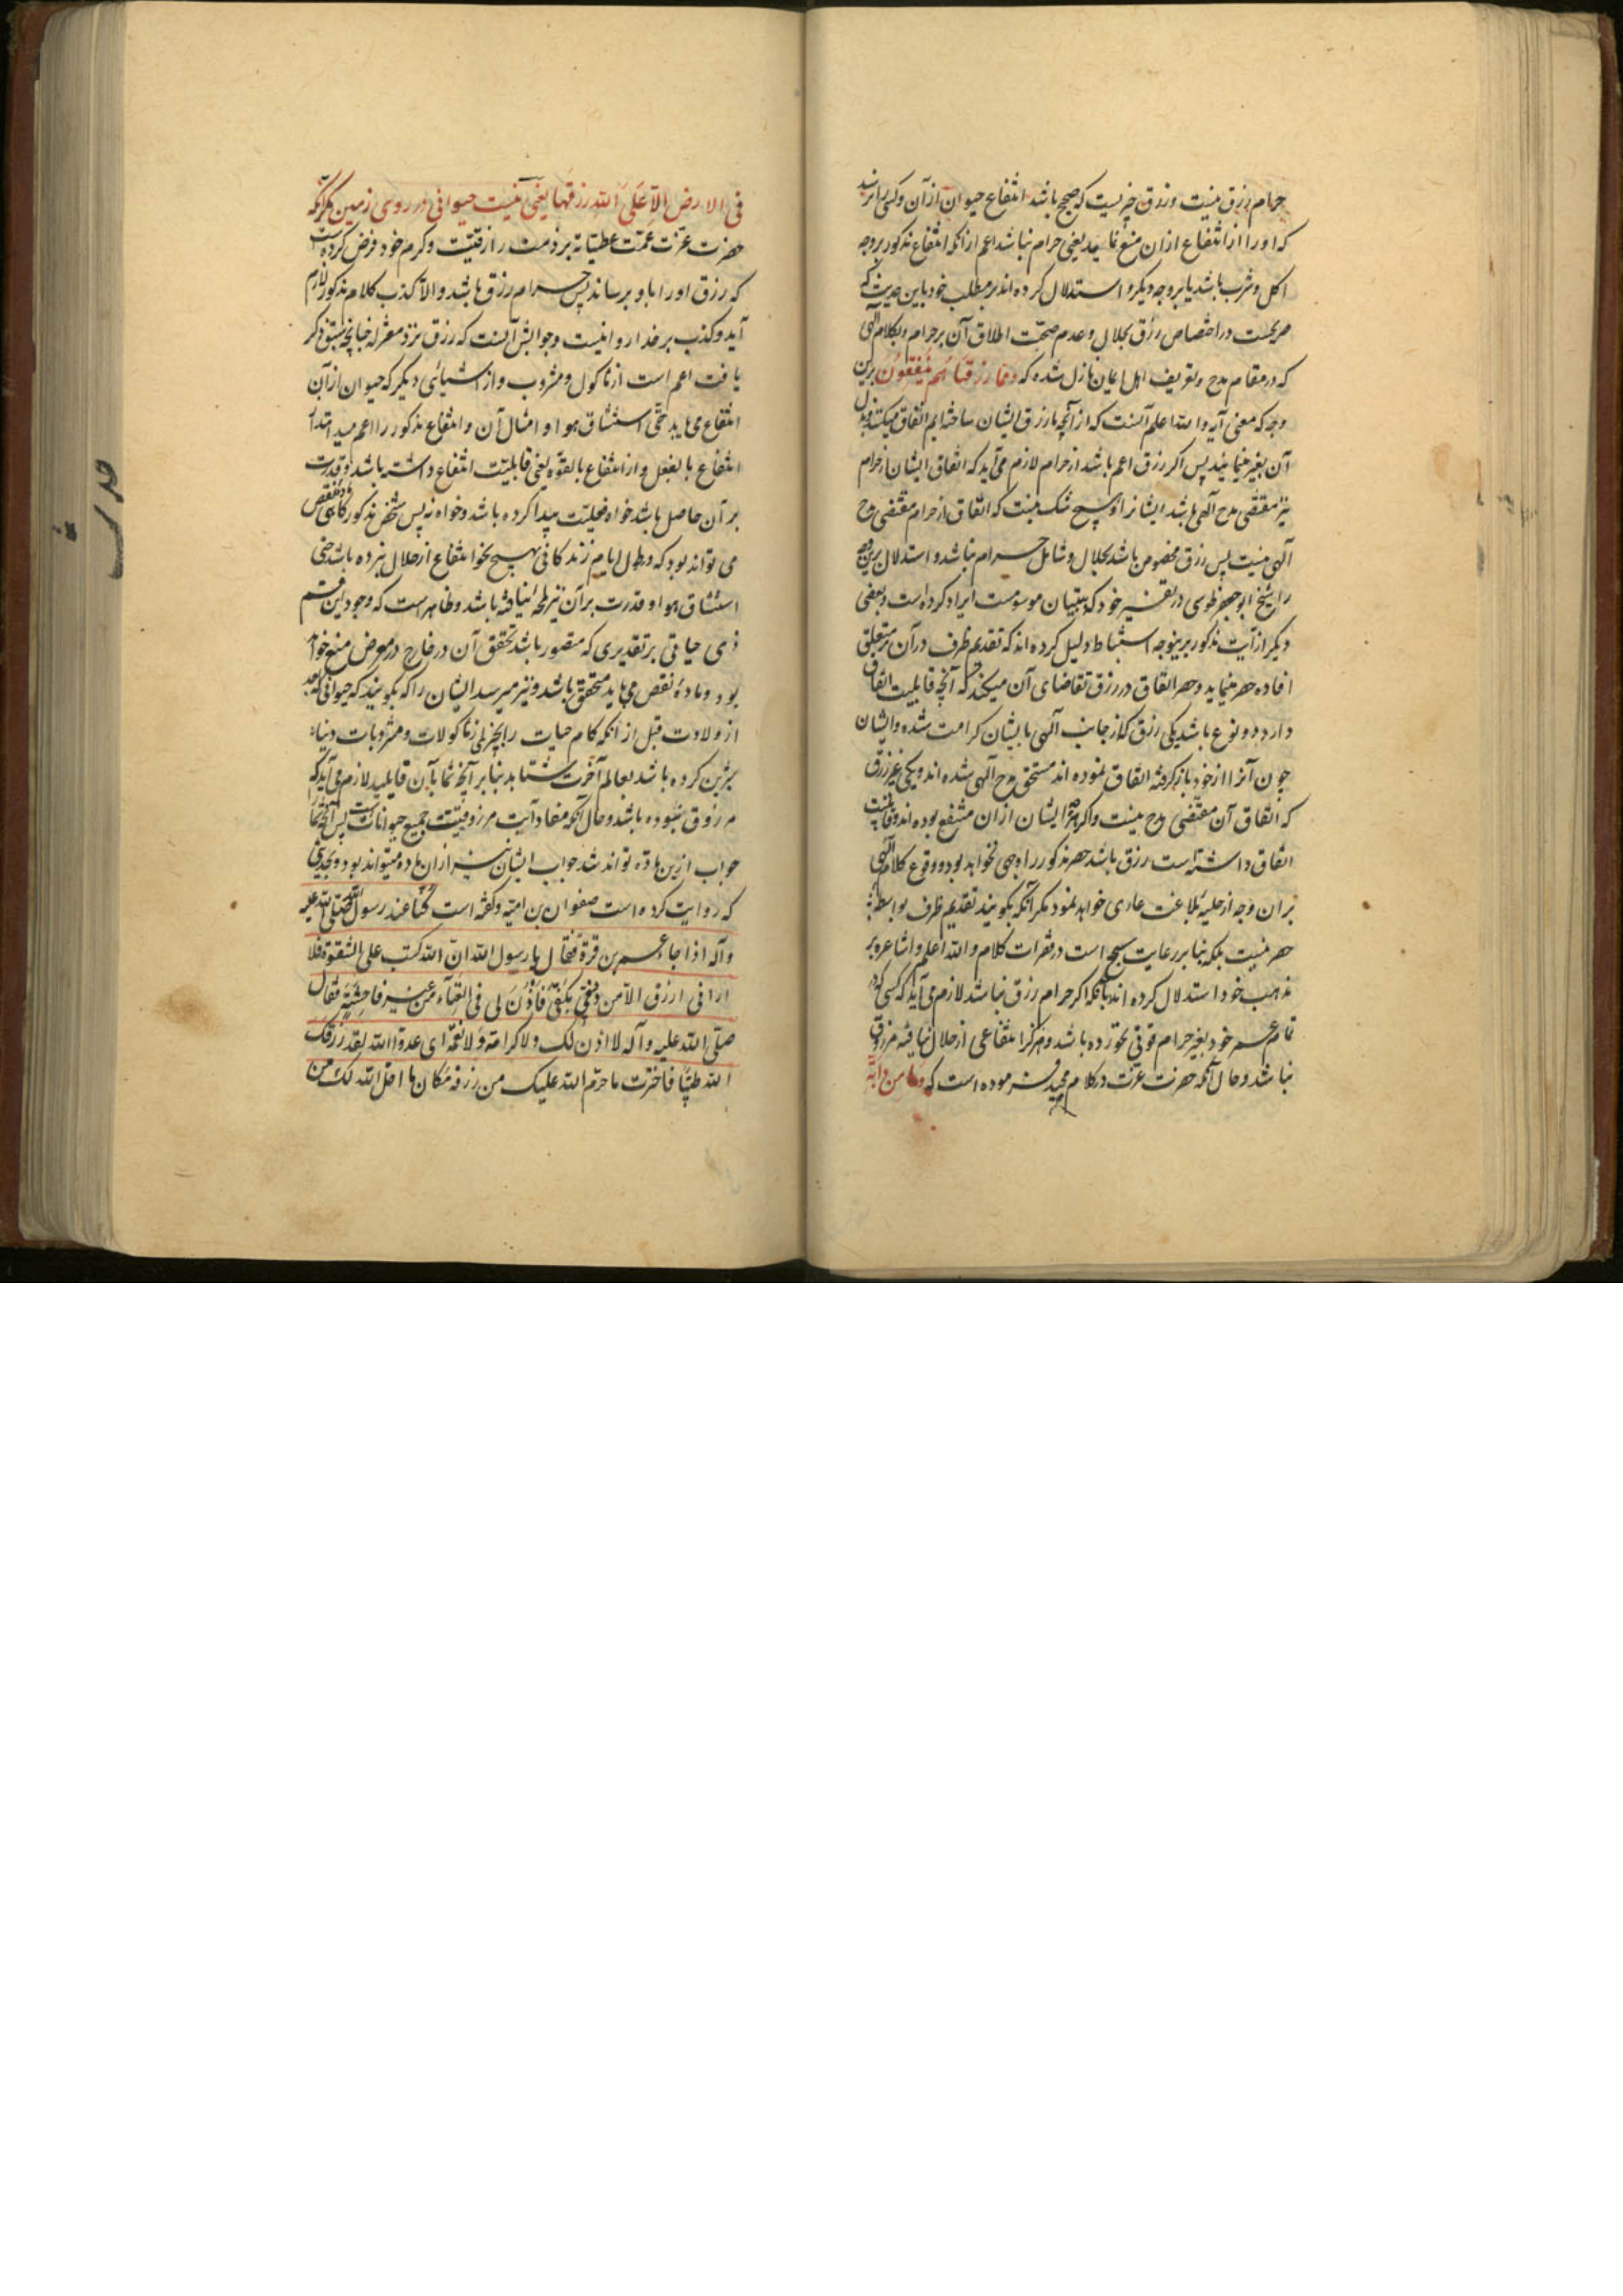 حرام رزق نیست و رزق چیزیست که صحیح باشد انتفاع حیوان از آن و کسی را نرسد
که او را از انتفاع ازان منع نماید یعنی حرام نباشد اعم ازانکه انتفاع مذکور بروجه
اکل و شرب باشد یا بروجه دیگر و استدلال کرده اند بر مطلب خود باین حدیث که
صریحست در اختصاص رزق بحلال و عدم صحّت اطلاق آن بر حرام و بکلام الهی
که در مقام مدح و تعریف اهل ایمان نازل شده که وممّا رزقناهم ینفقون برین
وجه که معنی آیه والله اعلم آنست که از آنچه ما رزق ایشان ساخته ایم انفاق میکنند و بذل
آن بغیر مینمایند پس اکر رزق اعم باشد از حرام لازم می آید که انفاق ایشان از حرام
نیز مقتضی مدح آلهی باشد ایشانرا و هیچ شک نیست که انفاق از حرام مقتضی مدح
آلهی نیست پس رزق مخصوص باشد بحلال و شامل حرام نباشد و استدلال برین وجه
را شیخ ابو جعفر طوسی در تفسیر خود که بتبیان موسومست ایراد کرده است و بعضی
دیکر از آیت مذکور برینوجه استنباط دلیل کرده اند که تقدیم ظرف در آن بر متعلق
افاده حصر مینماید و حصر انفاق در رزق تقاضای آن میکند که آنچه قابلیت انفاق
دارد دو نوع باشد یکی رزق که از جانب آلهی بایشان کرامت شده و ایشان
چون آنرا از خود باز کرفته انفاق نموده اند مستحق مدح آلهی شده اند و یکی غیر رزق
که انفاق آن مقتضی مدح نیست و اکر هر چه ایشان ازان منتفع بوده اند و قابلیت
انفاق داشته است رزق باشد حصر مذکور را وجهی نخواهد بود و وقوع کلام آلهی
بران وجه از حلیه بلاغت عاری خواهد نمود مکر آنکه بکویند تقدیم ظرف بواسطه
حصر نیست بلکه بنا بر رعایت سجع است در فقرات کلام والله اعلم و اشاعره بر
مذهب خود استدلال کرده اند بآنکه اکر حرام رزق نباشد لازم می آید که کسی که در
تمام عمر خود بغیر حرام قوتی نخورده باشد و هرکز انتفاعی از حلال نیافته مرزوق
نباشد و حال آنکه حضرت عزّت در کلام مجید فرموده است که وما من دابّة
فی الارض الاّ علی الله رزقها یعنی نیست حیوانی در روی زمین مکر آنکه
حضرت عزّت عمّت عطیّاته بر ذمت رازقیّت و کرم خود فرض کرده است
که رزق او را باو برساند پس حرام رزق باشد والاّ کذب کلام مذکور لازم
آید و کذب بر خدا روا نیست و جوابش آنست که رزق نزد معتزله چنانچه سبق ذکر
یافت اعم است از ماکول و مشروب و از اشیائی دیکر که حیوان از آن
انتفاع می یابد حتّی استنشاق هوا و امثال آن و انتفاع مذکور را اعم میدانند از
انتفاع بالفعل و از انتفاع بالقوّه یعنی قابلیّت انتفاع داشته باشد و قدرت
بر آن حاصل باشد خواه فعلیّت پیدا کرده باشد و خواه نه پس شخص مذکور کاهی نقض
می تواند بود که در طول ایام زندکانی بهیچ نحو انتفاع از حلال نبرده باشد حتی
استنشاق هوا و قدرت بر آن نیز لمحه نیافته باشد و ظاهرست که وجود این قسم
ذی حیاتی بر تقدیری که متصور باشد تحقق آن در خارج در معرض منع خواهد
بود و مادۀ نقض می باید متحقق باشد و نیز میرسد ایشان را که بکویند که حیوانی که بعد
از ولادت قبل از آنکه کام حیات را بچیزی از ماکولات و مشروبات دنیا
شیرین کرده باشد بعالم آخرت شتابد بنا بر آنچه شما بآن قایلید لازم می آید که
مرزوق نبوده باشد و حال آنکه مفاد آیت مرزوقیّت جمیع حیوانات است پس آنچه شما را
جواب ازین ماده تواند شد جواب ایشان نیز ازان ماده میتواند بود و بحدیثی
که روایت کرده است صفوان بن امیّه و کفته است کنّا عند رسول الله صلّی الله علیه
وآله اذا جاء عمر بن قرة فقال یا رسول الله انّ الله کتب علی الشقوة فلا
ارانی ارزق الاّ من دفّی بکفّی فأذن لی فی الغناء من غیر فاحشة فقال
صلّی الله علیه وآله لا اذن لک ولا کرامة ولا نعمة ای عدوّ الله لقد رزقک
الله طیّبا فاخترت ما حرّم الله علیک من رزقه مکان ما احلّ الله لک من